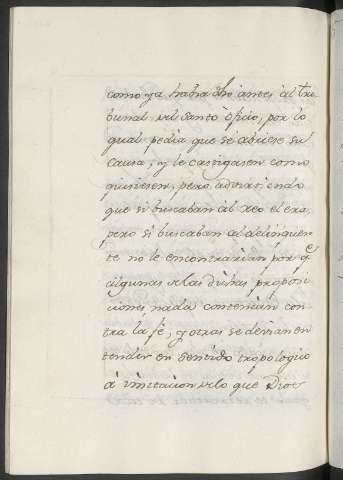 como ya havia dho antes al tri
bunal del Santo oficio, por lo
qual pedia que se abriese su
causa, y le castigasen como
quisiesen, pero advirtiendo
que si buscaban al reo el era,
pero si buscaban al delinquen
te no le encontrarian por q.e
algunas de las dichas proposi
ciones nada contenian con
tra la fé, y otras se devian en
tender en sentido tropologico
á imitacion de lo que Dios